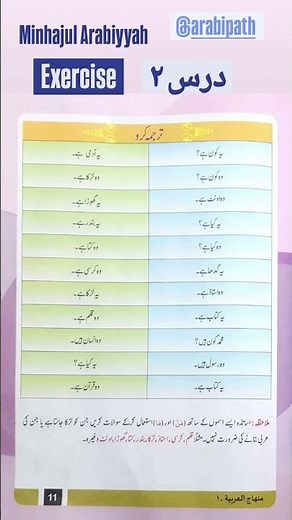 Minhajul Arabiyyah
@arabipath
Exercise
درس ۲
ترجمہ کرو
یہ کون ہے؟ یہ آدمی ہے۔
وہ کون ہے؟ وہ لڑکا ہے۔
وہ اونٹ ہے۔ یہ گھوڑا ہے۔
یہ کیا ہے؟ یہ بندر ہے۔
وہ کیا ہے؟ وہ کتا ہے۔
یہ گدھا ہے۔ وہ کرسی ہے۔
وہ استاذ ہے۔ یہ لڑکا ہے۔
یہ کتاب ہے۔ وہ قلم ہے۔
محمد کون ہیں؟ وہ انسان ہیں۔
وہ رسول ہیں۔ یہ کیا ہے؟
یہ کتاب ہے۔ وہ قرآن ہے۔
ملاحظہ: اساتذہ ایسے اسموں کے ساتھ (مَنْ) اور (مَا) استعمال کرکے سوالات کریں جن کو لڑکا جانتا ہے یا جن کی
عربی بتانے کی ضرورت نہیں۔ مثلاً قلم، کرسی، استاذ، لڑکا، بندر، کتا، گھوڑا، اونٹ وغیرہ۔
11
منهاج العربية ۔ ۱